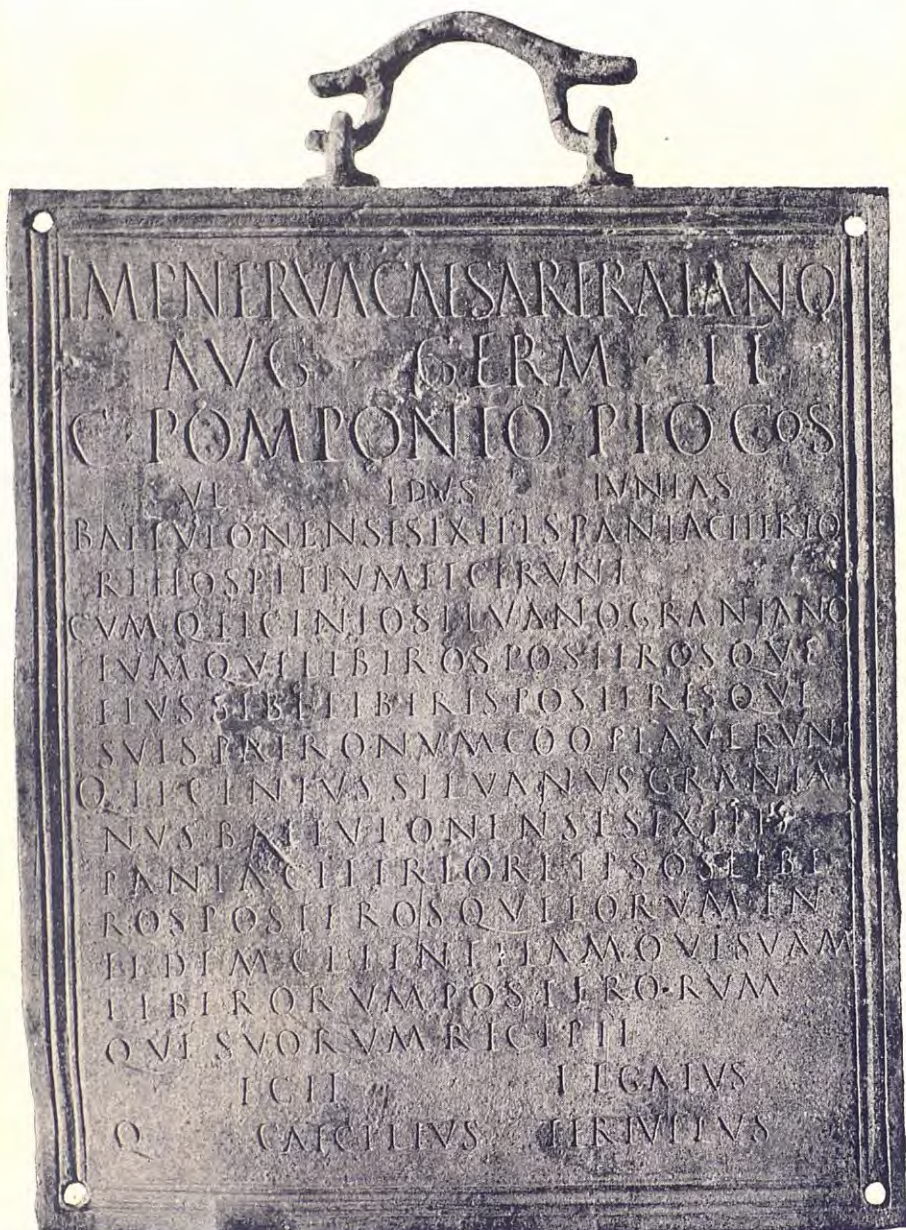 IMP NERVA CAESARE TRAIANO
AVG GERM II
C POMPONIO PIO COS
VI IDVS IVNIAS
BAETVLONENSES EX HISPANIA CITERIO
RE HOSPITIVM FECERVNT
CVM Q LICINIO SILVANO GRANIANO
EVMQVE LIBEROS POSTEROSQVE
EIVS SIBI LIBERIS POSTERISQVE
SVIS PATRONVM COOPTAVERVN
Q LICINIVS SILVANVS GRANIA
NVS BAETVLONENSES EX HIS
PANIA CITERIORE IPSOS LIBE
ROS POSTEROSQVE EORVM IN
FIDEM CLIENTELAMQVE SVAM
LIBERORVM POSTERORVM
QVE SVORVM RECEPIT
EGIT LEGATVS
Q CAECILIVS TERTVLLVS